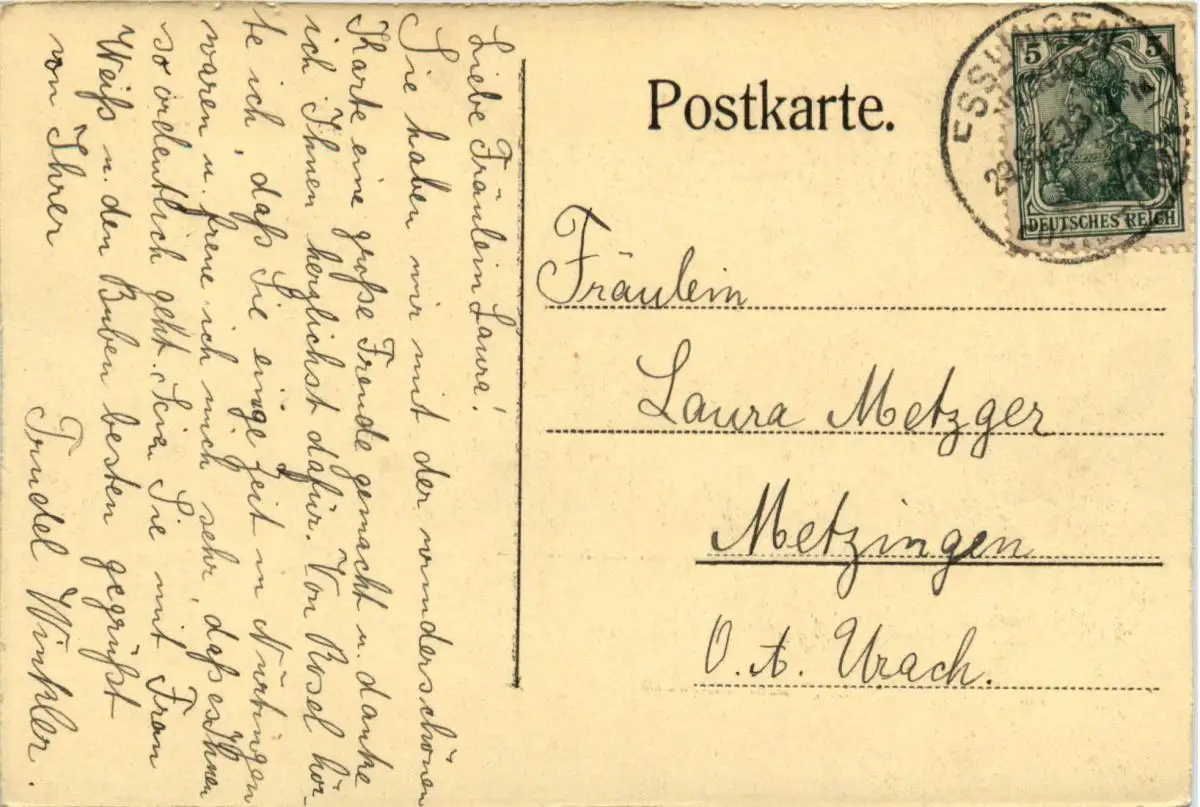 Liebe Fräulein Laura!
Sie haben mir mit der wunderschönen
Karte eine große Freude gemacht u. danke
ich Ihnen herzlichst dafür. Von Rosel hör-
te ich, daß Sie einige Zeit in Nürtingen
waren u. freue ich mich sehr, daß es Ihnen
so ordentlich geht. Seien Sie mit Frau
Weiß u. den Buben besten gegrüßt
von Ihrer
Trudel Winkler.
Postkarte.
ESSLINGEN
5 5
DEUTSCHES REICH
Fräulein
Laura Metzger
Metzingen
O. A. Urach.